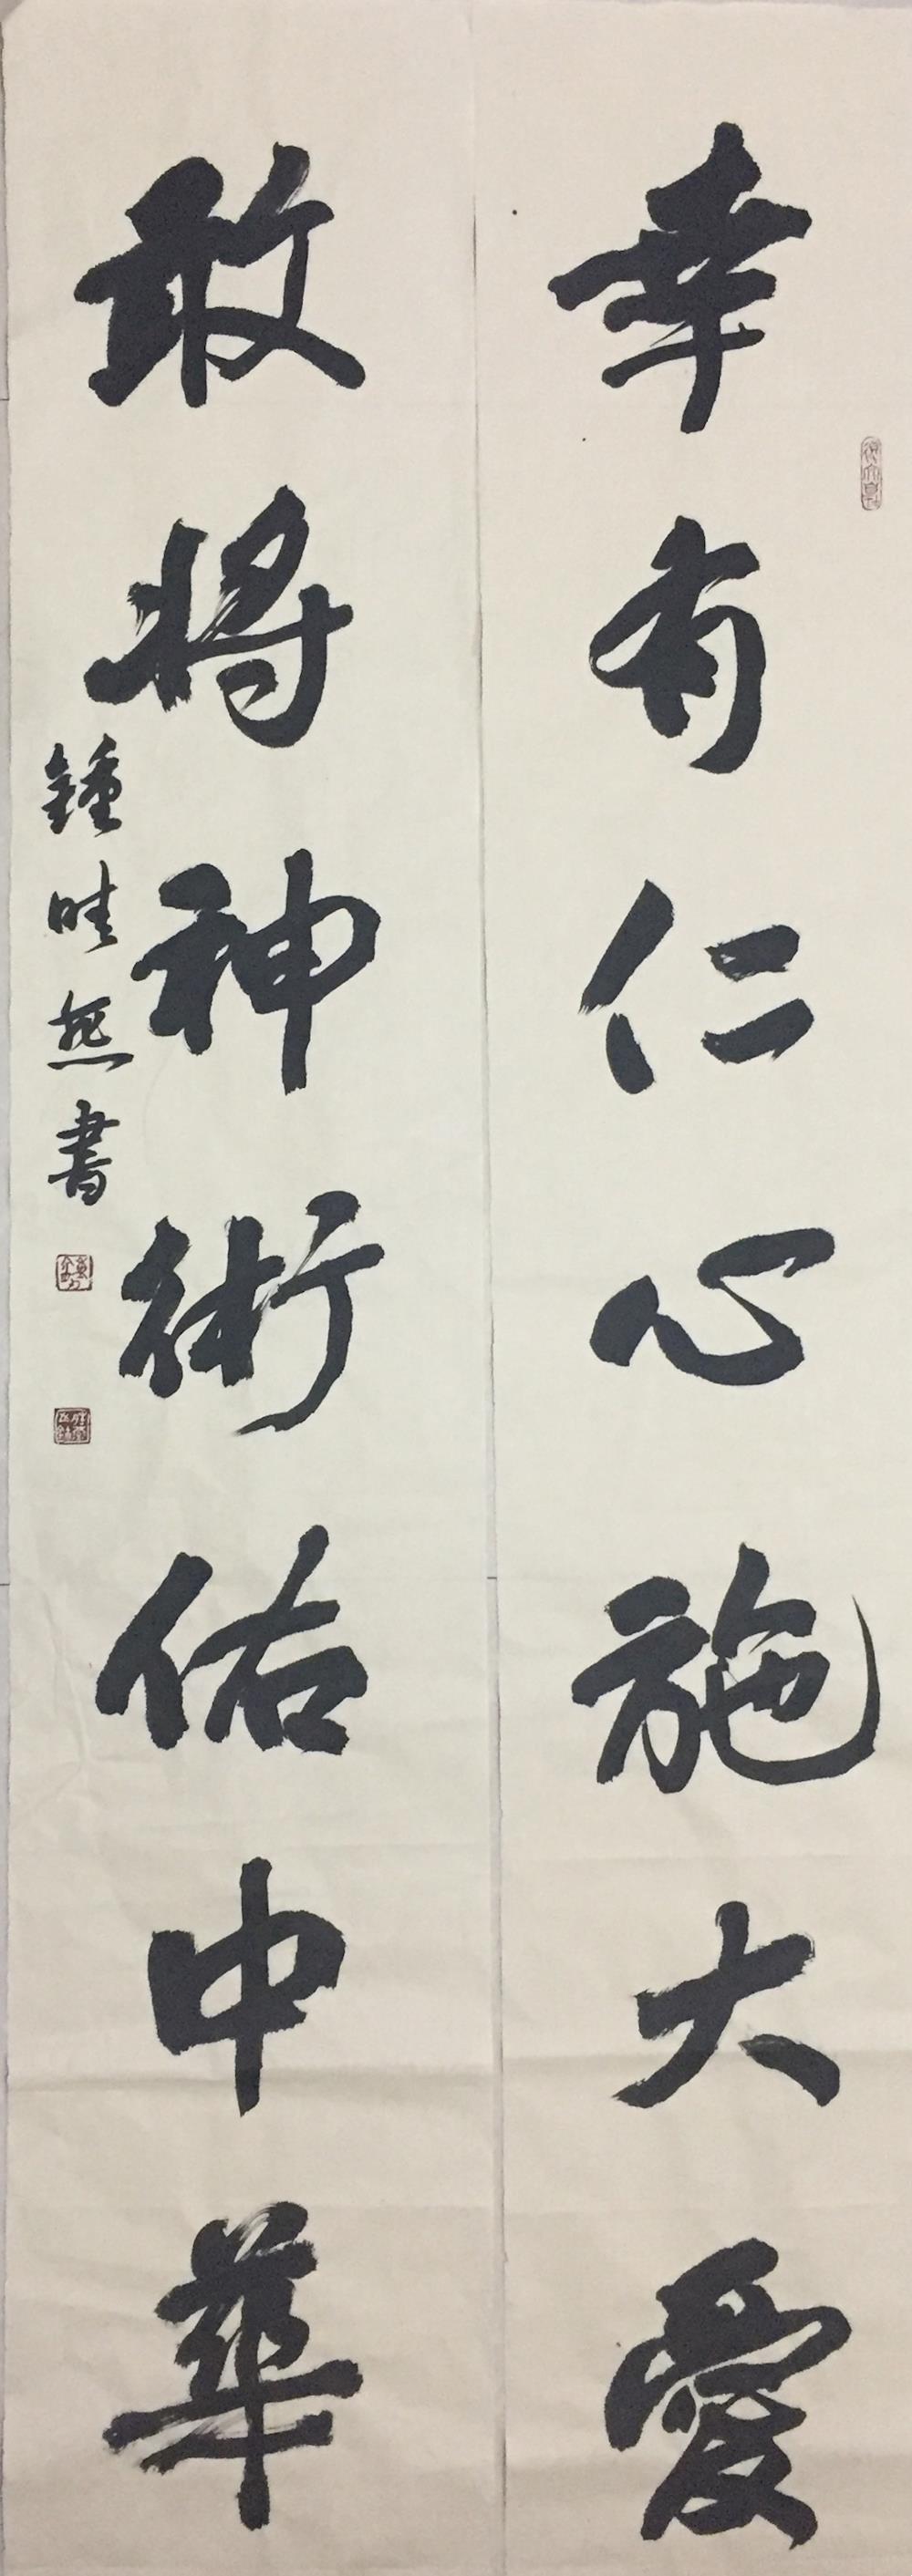 幸有仁心施大愛
敢將神術佑中華
鍾 書